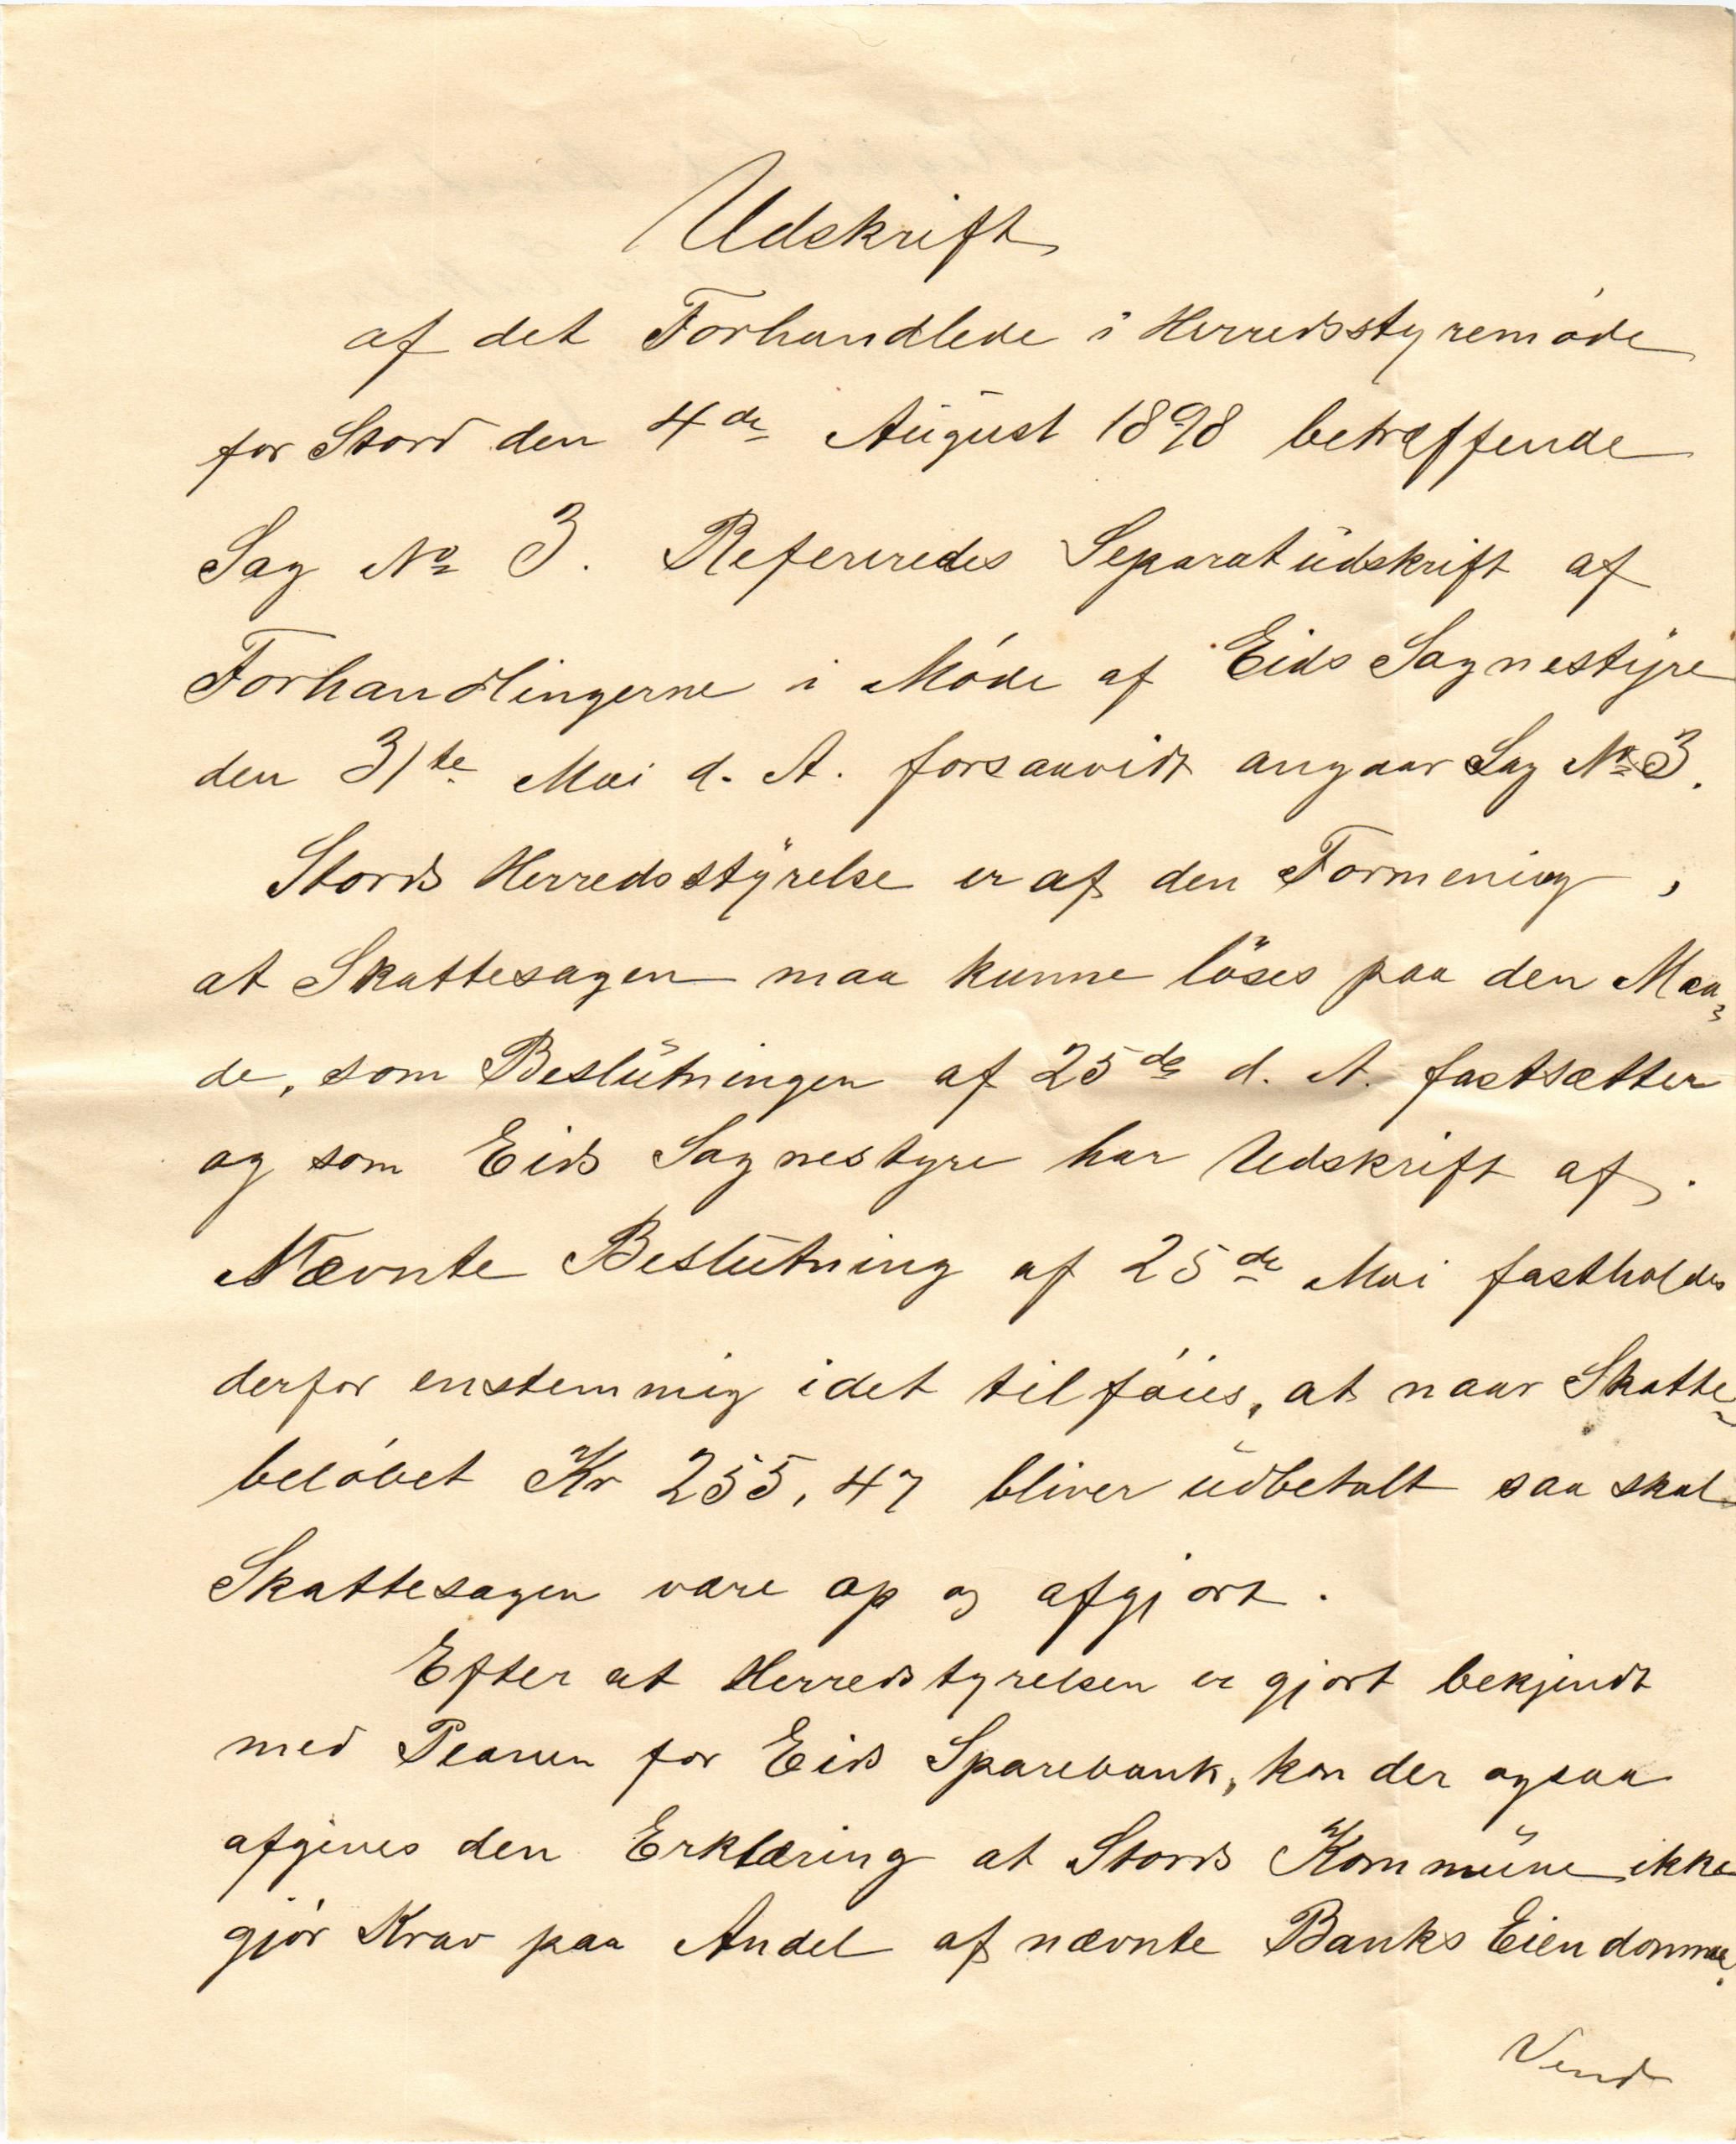 Udskrift
af det Forhandlede i Herredsstyremøde
for Stord den 4de August 1898 betræffende
Sag No 3. Refereredes Separatudskrift af
Forhandlingerne i Møde af Eids Sognestyre
den 31te Mai d. A. forsaavidt angaar Sag No 3.
Stords Herredsstyrelse er af den Formening,
at Skattesagen maa kunne løses paa den Maa-
de, som Beslutningen af 25de d. A. fastsætter
og som Eids Sognestyre har Udskrift af.
Nævnte Beslutning af 25de Mai fastholdes
derfor enstemmig idet tilføies, at naar Skatte-
beløbet Kr 255,47 bliver udbetalt saa skal
Skattesagen være op og afgjort.
Efter at Herredstyrelsen er gjort bekjendt
med Planen for Eids Sparebank, kan der ogsaa
afgives den Erklæring at Stords Kommune ikke
gjør Krav paa Andel af nævnte Banks Eiendomme.
Vend